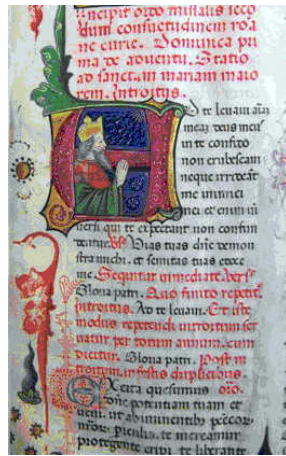 Incipit ordo missalis secū
dum consuetudinem roā
ne curie. Dominica pri
ma de adventu. Statio
ad sanctam mariam maio
rem. Introitus.
D te levavi aīaȝ
meaȝ deus meus
in te confido
non erubescam
neque irrideāt
me inimici
mei et enim uni
versi qui te expectant non confun
dentur. Vias tuas dn̄e demon
stra michi. et semitas tuas edoce
me. Sequitur inmediate
Gloria patri. Quo finito repetit̄
Introitus. Ad te levavi. Et iste
modus repetendi introitum ser
vatur per totum annum. cum
dicitur. Gloria patri. Post in
troitum in festis duplicibus.
Excita quesumus oīo.
dn̄e potentiam tuam et
veni. ut ab iminentibus peccor̄
nr̄or̄ periculis. te mereamur
protegente eripi te liberante